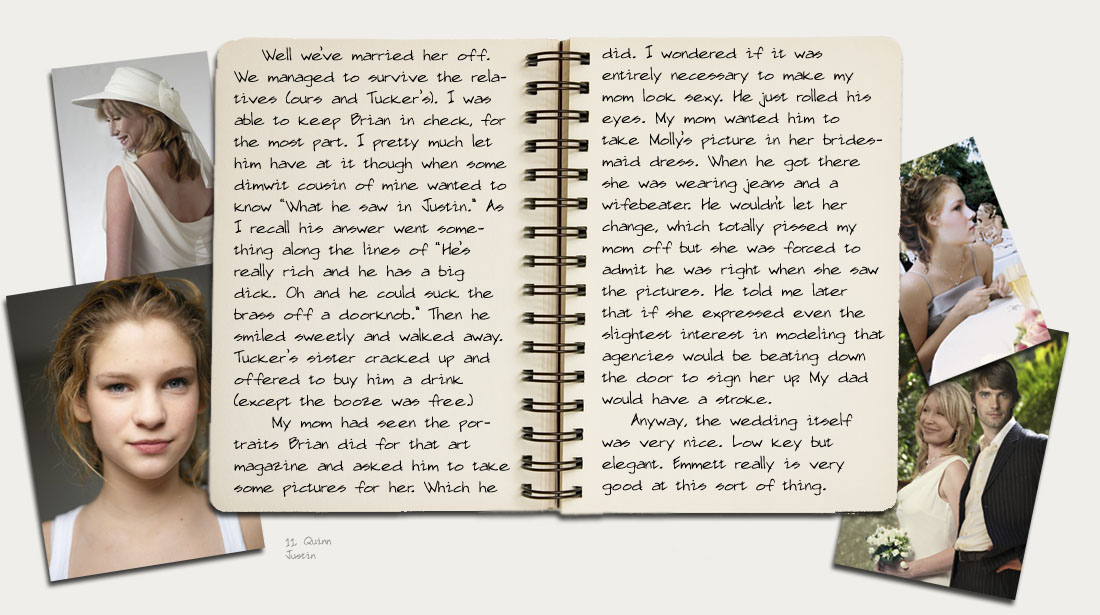 Well we've married her off.
We managed to survive the rela-
tives (ours and Tucker's). I was
able to keep Brian in check, for
the most part. I pretty much let
him have at it though when some
dimwit cousin of mine wanted to
know "What he saw in Justin." As
I recall his answer went some-
thing along the lines of "He's
really rich and he has a big
dick. Oh and he could suck the
brass off a doorknob." Then he
smiled sweetly and walked away.
Tucker's sister cracked up and
offered to buy him a drink
(except the booze was free.)
My mom had seen the por-
traits Brian did for that art
magazine and asked him to take
some pictures for her. Which he
did. I wondered if it was
entirely necessary to make my
mom look sexy. He just rolled his
eyes. My mom wanted him to
take Molly's picture in her brides-
maid dress. When he got there
she was wearing jeans and a
wifebeater. He wouldn't let her
change, which totally pissed my
mom off but she was forced to
admit he was right when she saw
the pictures. He told me later
that if she expressed even the
slightest interest in modeling that
agencies would be beating down
the door to sign her up. My dad
would have a stroke.
Anyway, the wedding itself
was very nice. Low key but
elegant. Emmett really is very
good at this sort of thing.
11 Quinn
Justin